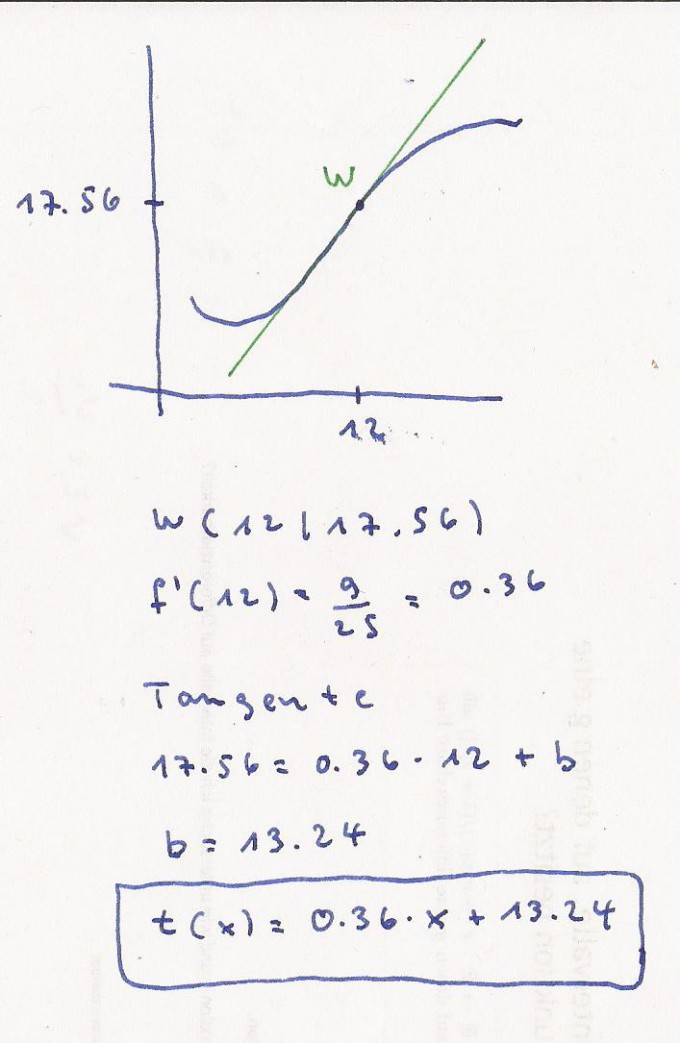 W
17.56
12
W(12|17.56)
f'(12) = 9/25 = 0.36
Tangente
17.56 = 0.36 · 12 + b
b = 13.24
t(x) = 0.36 · x + 13.24